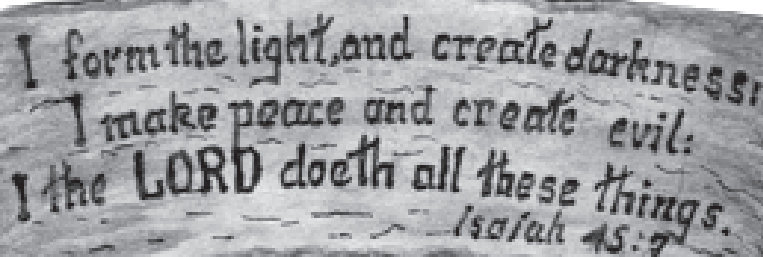 I form the light, and create darkness:
I make peace and create evil:
I the LORD doeth all these things.
Isaiah 45:7